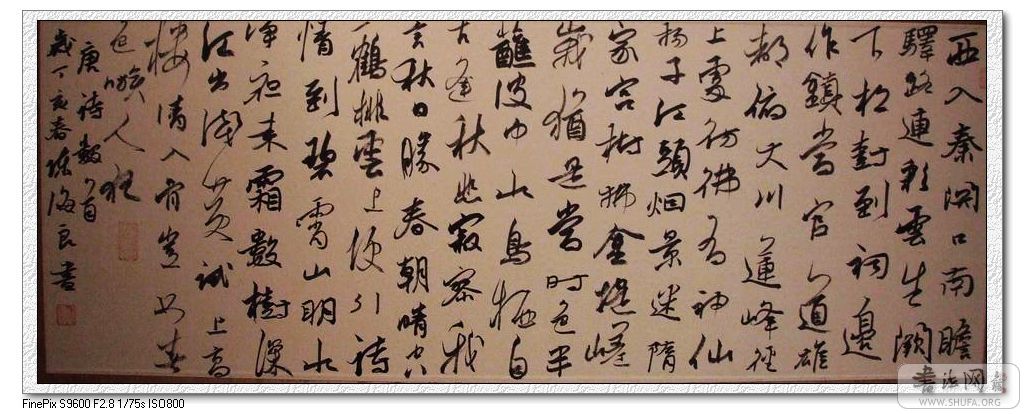 西入秦關口南瞻
驛路連彩雲生闕
下松樹到祠邊
作鎮當官道雄
都俯大川蓮峰徑
上處彷彿有神仙
揚子江頭烟景迷隋
家宮樹拂金堤嵯
峨猶是當時色半
蘸波中水鳥棲自
古逢秋悲寂寥我
言秋日勝春朝晴空
一鶴排雲上便引詩
情到碧霄山明水
淨夜來霜數樹深
紅出淺黃試上高
樓清入骨豈如春
色嗾人狂
唐詩數首
歲丁亥春陳海良書
書法网
WWW.SHUFA.ORG
FinePix S9600 F2.8 1/75s ISO800